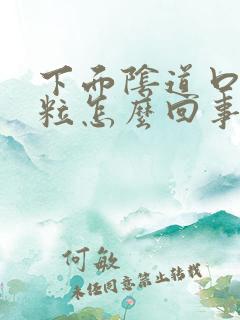 下面陰道口
粒怎麼回事
何敏
未经同意禁止转载